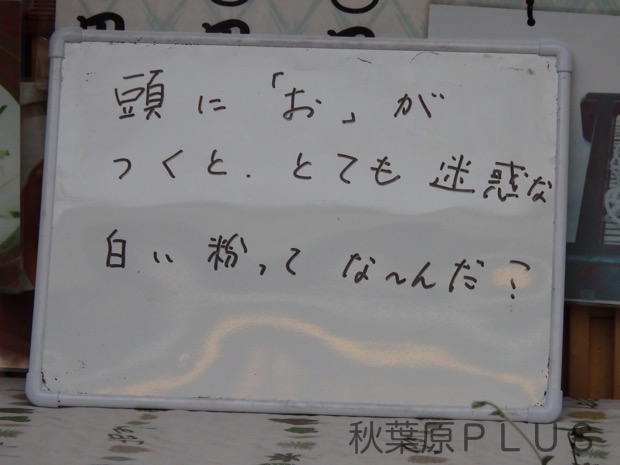 頭に「お」が
つくと、とても迷惑な
白い粉ってな〜んだ?
秋葉原PLUS